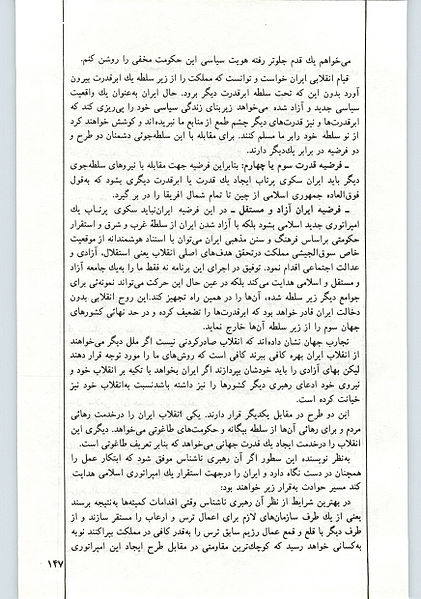 می‌خواهم یك قدم جلوتر رفته هویت سیاسی این حکومت مخفی را روشن کنم.
قیام انقلابی ایران خواست و توانست که مملکت را از زیر سلطه یك ابرقدرت بیرون
آورد بدون این که تحت سلطه ابرقدرت دیگر برود. حال ایران به‌عنوان یك واقعیت
سیاسی جدید و آزاد شده می‌خواهد زیربنای زندگی سیاسی خود را پی‌ریزی کند که
ابرقدرت‌ها و نیز قدرت‌های دیگر چشم طمع از منابع ما نبریده‌اند و کوشش خواهند کرد
از نو سلطه خود را بر ما مسلم کنند. برای مقابله با این سلطه‌جوئی دشمنان دو طرح و
دو فرضیه در برابر یك‌دیگر دارند.
ـ فرضیه قدرت سوم یا چهارم: بنابراین فرضیه جهت مقابله با نیروهای سلطه‌جوی
دیگر باید ایران سکوی پرتاب ایجاد یك قدرت یا ابرقدرت دیگری بشود که به‌قول
فوق‌العاده جمهوری اسلامی از چین تا تمام شمال افریقا را در بر گیرد.
ـ فرضیه ایران آزاد و مستقل ـ در این فرضیه ایران‌نباید سکوی پرتاب یك
امپراتوری جدید اسلامی بشود بلکه با آزاد شدن ایران از سلطهٔ غرب و شرق و استقرار
حکومتی براساس فرهنگ و سنن مذهبی ایران می‌توان با استناد هوشمندانه از موقعیت
خاص سوق‌الجیشی مملکت درتحقق هدف‌های اصلی انقلاب یعنی استقلال، آزادی و
عدالت اجتماعی اقدام نمود. توفیق در اجرای این برنامه نه فقط ما را به‌یك جامعه آزاد
و مستقل و اسلامی هدایت می‌کند بلکه در عین حال این حرکت می‌تواند نمونه‌ئی برای
جوامع دیگر زیر سلطه شده، آن‌ها را در همین راه تجهیز کند.این روح انقلابی بدون
دخالت ایران قادر خواهد بود که ابرقدرت‌ها را تضعیف کرده و در حد نهائی کشورهای
جهان سوم را از زیر سلطه آن‌ها خارج نماید.
تجارب جهان نشان داده‌اند که انقلاب صادرکردنی نیست اگر ملل دیگر می‌خواهند
از انقلاب ایران بهره کافی ببرند کافی است که روش‌های ما را مورد توجه قرار دهند
لیکن بهای آزادی را باید خودشان بپردازند اگر ایران بخواهد با تکیه بر انقلاب خود و
نیروی خود ادعای رهبری دیگر کشورها را نیز داشته باشدنسبت به‌انقلاب خود نیز
خیانت کرده است.
این دو طرح در مقابل یکدیگر قرار دارند. یکی انقلاب ایران را درخدمت رهائی
مردم و برای رهائی آن‌ها از سلطه بیگانه و حکومت‌های طاغوتی می‌خواهد. دیگری این
انقلاب را درخدمت ایجاد یك قدرت جهانی می‌خواهد که بنابر تعریف طاغوتی است.
به‌نظر نویسنده این سطور اگر آن رهبری ناشناس موفق شود که ابتکار عمل را
همچنان در دست نگاه دارد و ایران را درجهت استقرار یك امپراتوری اسلامی هدایت
کند مسیر حوادث به‌قرار زیر خواهند بود:
در بهترین شرایط از نظر آن رهبری ناشناس وقتی اقدامات کمیته‌ها به‌نتیجه برسند
یعنی از یك طرف سازمان‌های لازم برای اعمال ترس و ارعاب را مستقر سازند و از
طرف دیگر با قلع و قمع عمال رژیم سابق ترس را به‌قدر کافی در مملکت بپراکنند نوبه
به‌کسانی خواهد رسید که کوچك‌ترین مقاومتی در مقابل طرح ایجاد این امپراتوری
۱۴۷